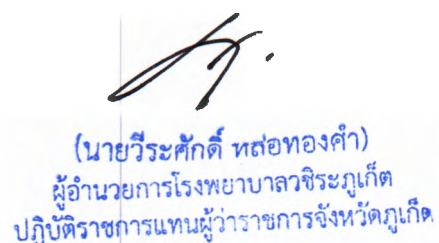 (นายวีระศักดิ์ หล่อทองคำ)
ผู้อำนวยการโรงพยาบาลวชิระภูเก็ต
ปฏิบัติราชการแทนผู้ว่าราชการจังหวัดภูเก็ต